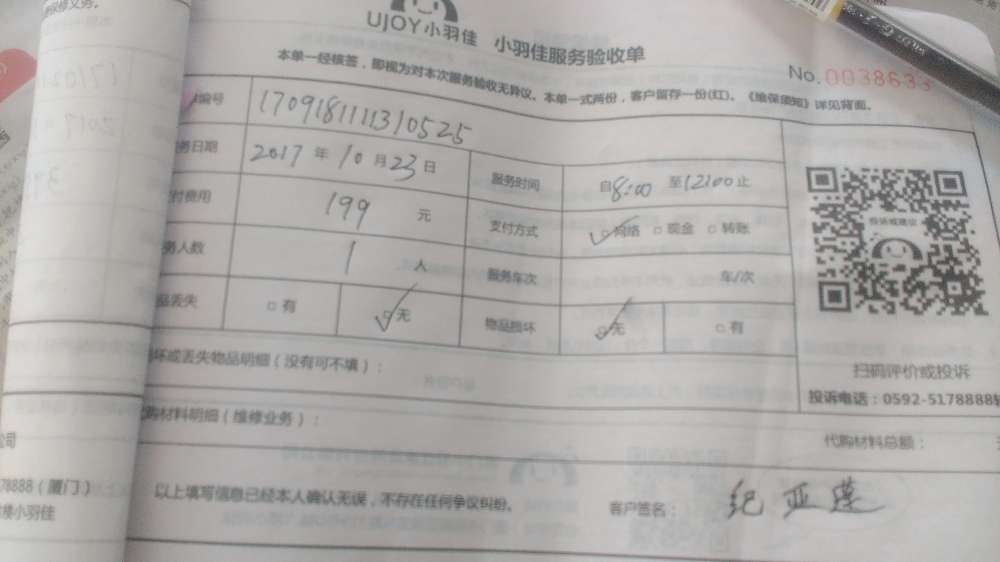 UJOY小羽佳 小羽佳服务验收单
No.003863
本单一经核签，即视为对本次服务验收无异议。本单一式两份，客户留存一份(红)。《维保须知》详见背面。
编号 1709181111310525
务日期 2017年10月23日 服务时间 自8:00 至12:00止
付费用 199 元 支付方式 网络 现金 转账
务人数 1 人 服务车次 年/次
品丢失 有 无 物品损坏 无 有
坏或丢失物品明细（没有可不填）：
扫码评价或投诉
投诉电话：0592-5178888
购材料明细（维修业务）：
代购材料总额：
公司
78888（厦门）
小羽佳
以上填写信息已经本人确认无误，不存在任何争议纠纷。
客户签名： 纪亚莲